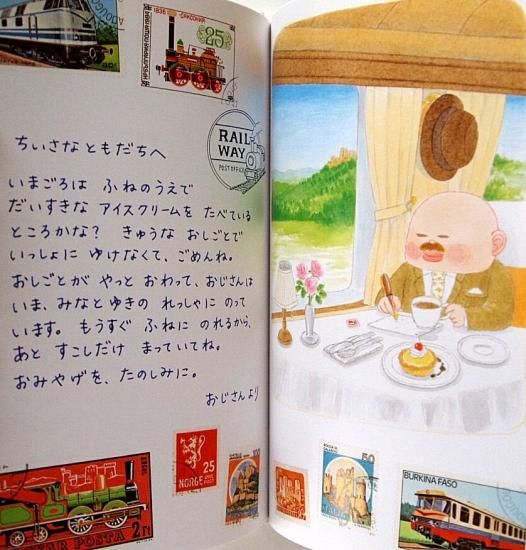 1836 САКСОНИЯ
25
RAIL
WAY
POST OFFICE
ちいさなともだちへ
いまごろは ふねのうえで
だいすきな アイスクリームを たべている
ところかな? きゅうな おしごとで
いっしょに ゆけなくて、ごめんね。
おしごとが やっと おわって、おじさんは
いま、みなとゆきの れっしゃに のって
います。 もうすぐ ふねに のれるから、
あと すこしだけ まっていてね。
おみやげを、たのしみに。
おじさんより
25
NORGE
50
BURKINA FASO
POSTA 2